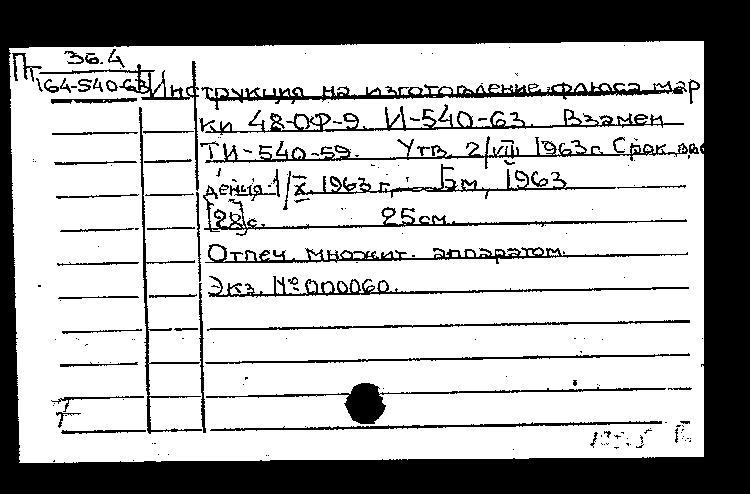 Пт 36.4
164-540-63 Инструкция на изготовление флюса мар
ки 48-ОФ-9. И-540-63. Взамен
ТИ-540-59. Утв. 2/VIII 1963 г. Срок вве
дения 1/X 1963 г. Б.м., 1963
[28]с. 25 см.
Отпеч. множит. аппаратом.
Экз. № 000060.